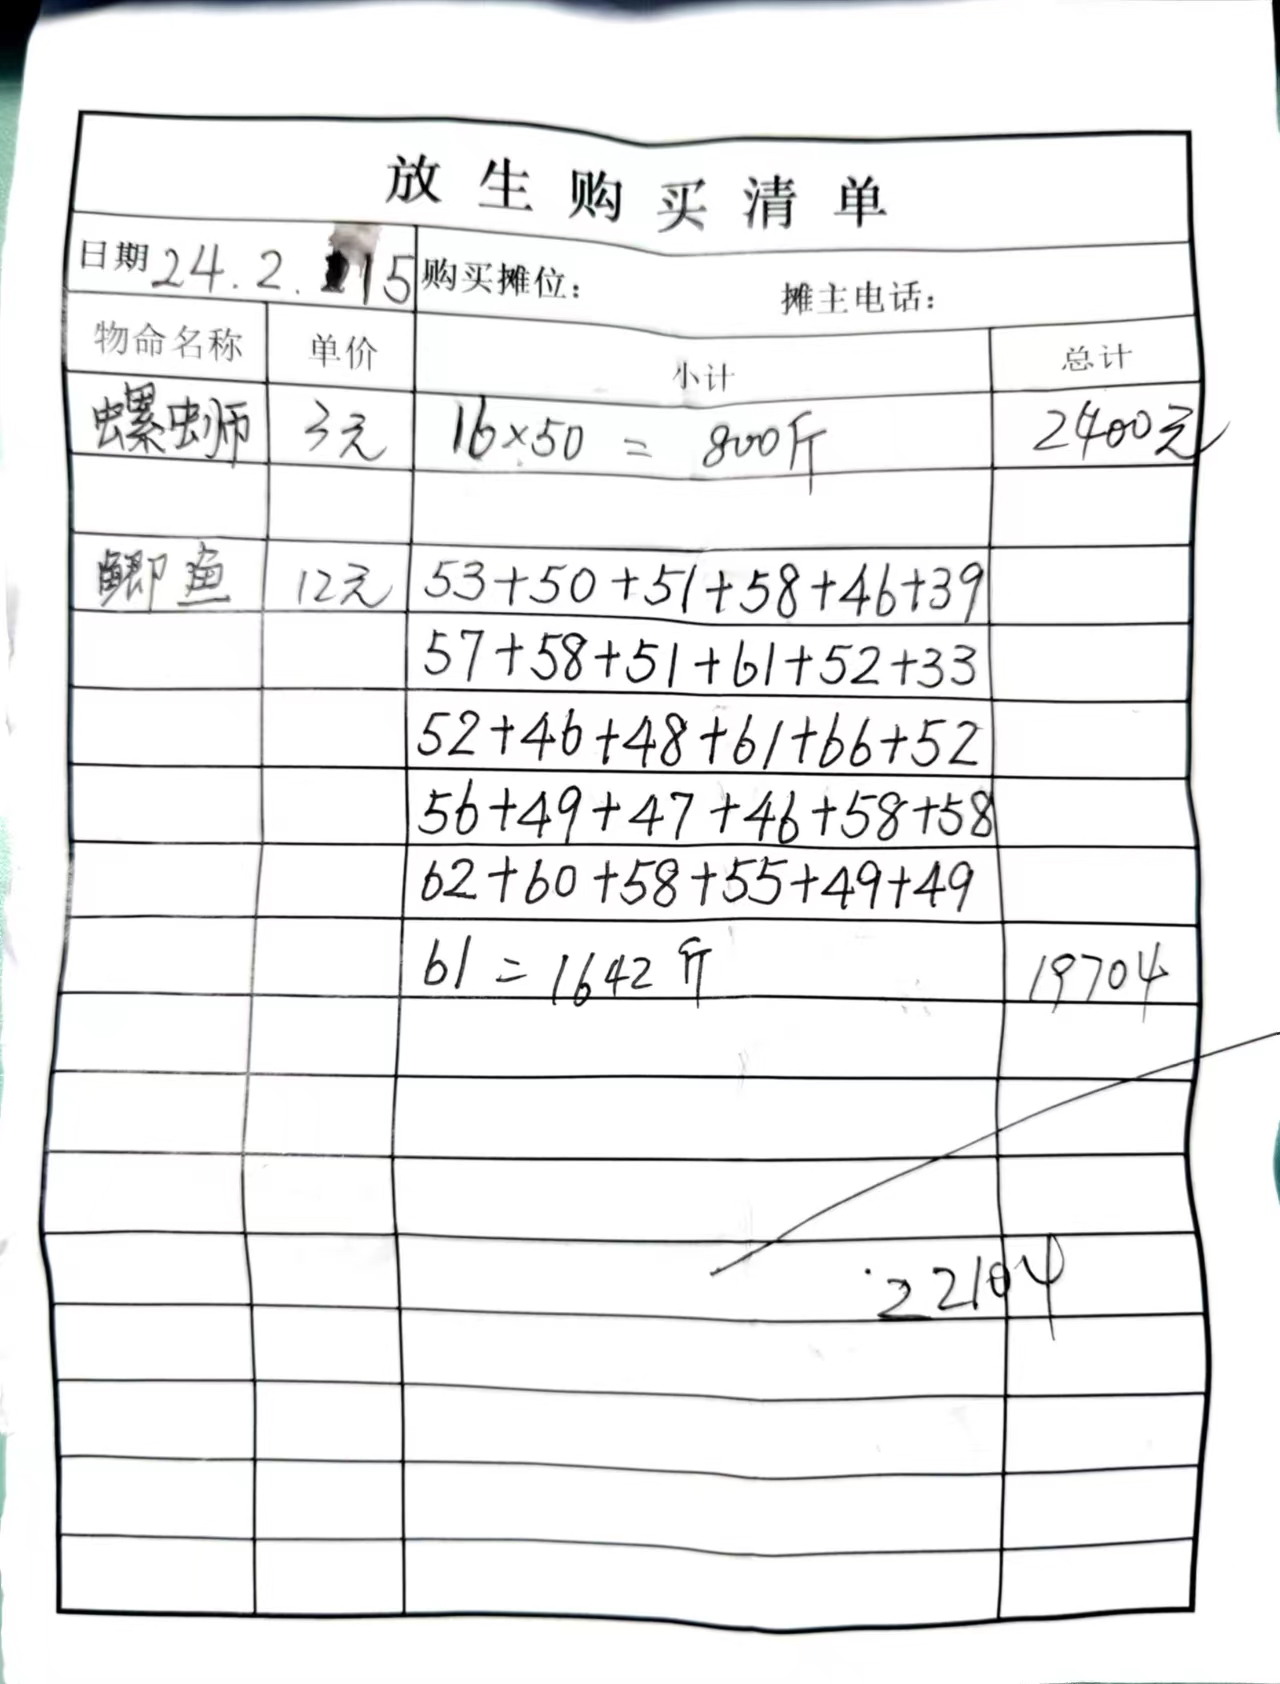 放生购买清单
日期 24.2.15 购买摊位： 摊主电话：
物命名称 单价 小计 总计
螺蛳 3元 16×50 = 800斤 2400元
鲫鱼 12元 53+50+51+58+46+39
57+58+51+61+52+33
52+46+48+61+66+52
56+49+47+46+58+58
62+60+58+55+49+49
61 = 1642斤 19704
22104